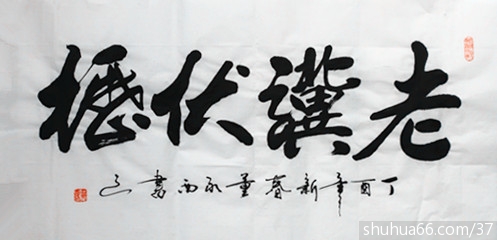 老驥伏櫪
丁酉年新春董永西書
shuhua66.com/37